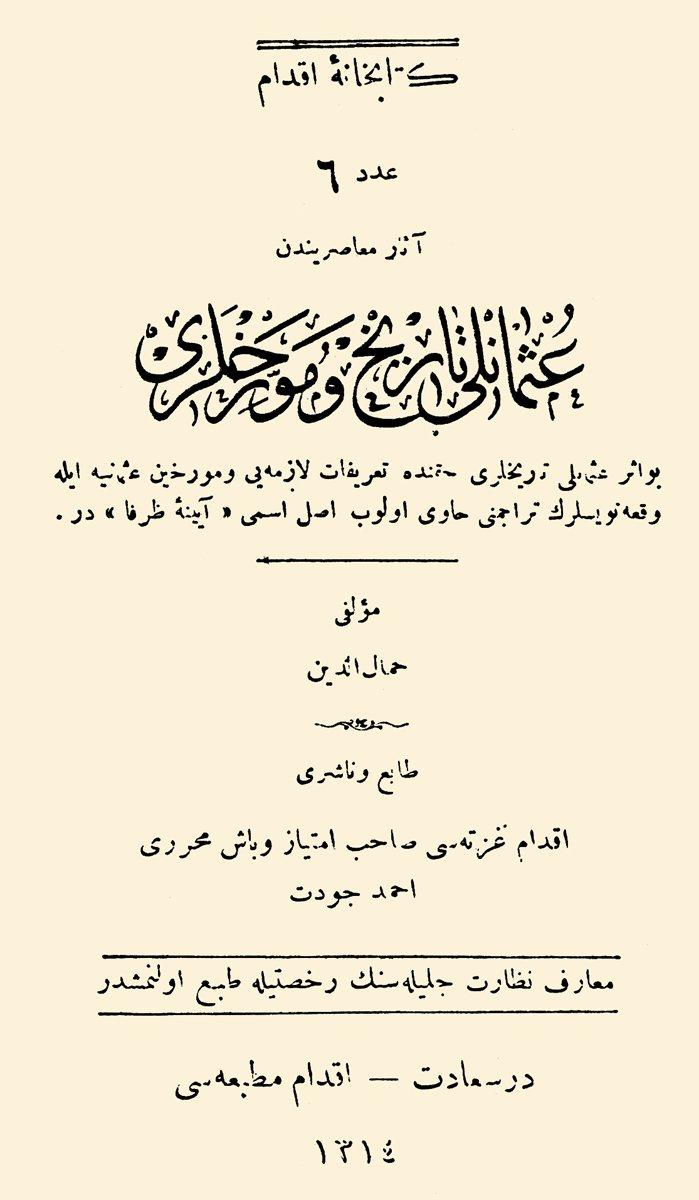 كتابخانۀ اقدام
عدد ٦
آثار معاصریندن
عُثمانلی تاریخ و مُوَرّخلری
بو اثر عثمانلی تاریخلری حقنده تعریفات لازمه‌یی و مورخین عثمانیه ایله
وقعه‌نویسلرك تراجمنی حاوی اولوب اصل اسمی « آیینۀ ظرفا » در .
مؤلفی
جمال‌الدین
طابع و ناشری
اقدام غزته‌سی صاحب امتیاز و باش محرری
احمد جودت
معارف نظارت جلیله‌سنك رخصتیله طبع اولنمشدر
درسعادت — اقدام مطبعه‌سی
١٣١٤